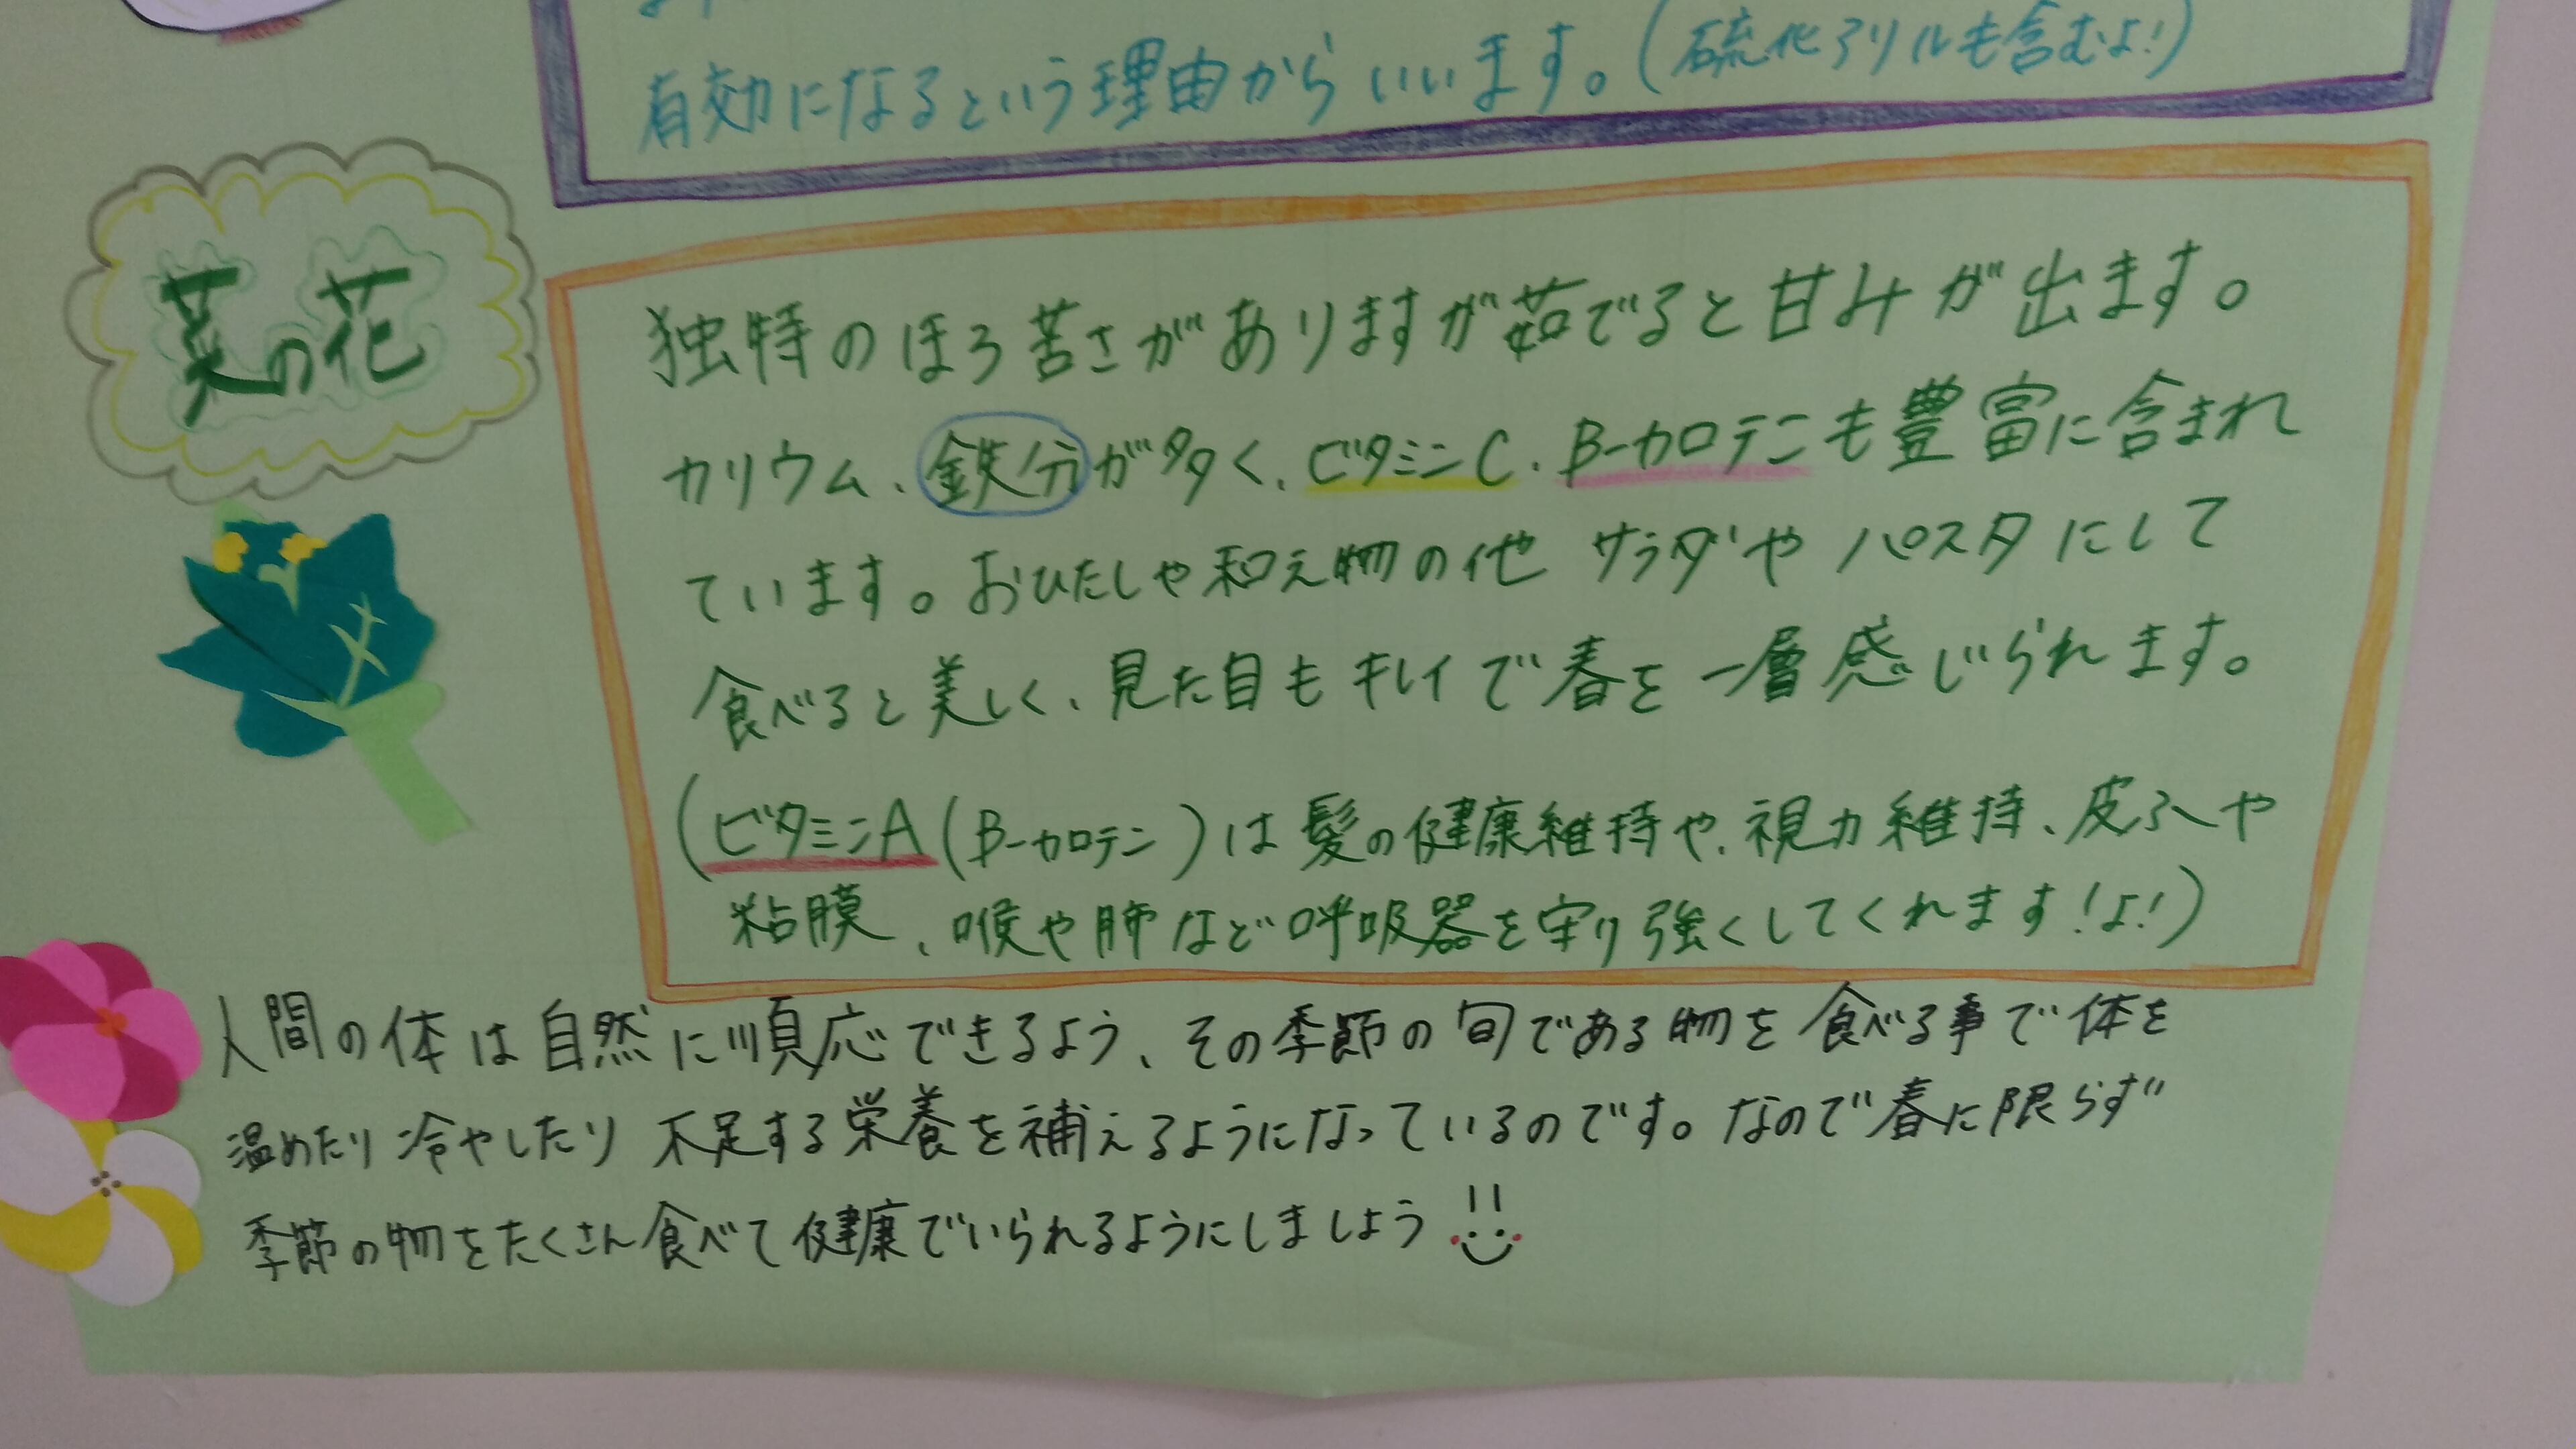 有効になるという理由からいいます。(硫化アリルも含むよ!)
菜の花
独特のほろ苦さがありますが茹でると甘みが出ます。
カリウム、鉄分が多く、ビタミンC、β-カロテンも豊富に含まれ
ています。おひたしや和え物の他 サラダや パスタにして
食べると美しく、見た目もキレイで春を一層感じられます。
(ビタミンA(β-カロテン)は髪の健康維持や、視力維持、皮ふや
粘膜、喉や肺など呼吸器を守り強くしてくれます!よ!)
人間の体は自然に順応できるよう、その季節の旬である物を食べる事で体を
温めたり冷やしたり 不足する栄養を補えるようになっているのです。なので春に限らず
季節の物をたくさん食べて健康でいられるようにしましょう!!